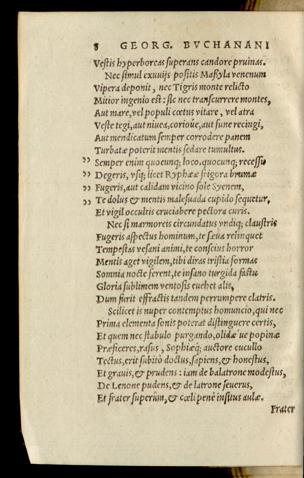 8 GEORG. BVCHANANI
Vestis hyperboreas superans candore pruinas.
Nec simul exuuijs positis Massyla venenum
Vipera deponit, nec Tigris monte relicto
Mitior ingenio est: sic nec transcurrere montes,
Aut mare, vel populi cœtus vitare, vel atra
Veste tegi, aut niuea, corioúe, aut fune recingi,
Aut mendicatum semper corrodere panem
Turbatæ poterit mentis sedare tumultus.
” Semper enim quocunq; loco, quocunq; recessu
” Degeris, vsq; licet Ryphææ frigora brumæ
” Fugeris, aut calidam vicino sole Syenem,
” Te dolus & mentis malesuada cupido sequetur,
Et vigil occultis cruciabere pectora curis.
Nec si marmoreis circundatus vndiq; claustris
Fugeris aspectus hominum, te sæua relinquet
Tempestas vesani animi, te conscius horror
Mentis aget vigilem, tibi diras tristia formas
Somnia nocte ferent, te insano turgida fastu
Gloria sublimem ventosis euehet alis,
Dum furit effractis tandem perrumpere clatris.
Scilicet is nuper contemptus homuncio, qui nec
Prima elementa sonis poterat distinguere certis,
Et quem nec stabulo purgando, olidæ úe popinæ
Præficeres, rasus, Sophiæq; auctore cucullo
Tectus, erit subitò doctus, sapiens, & honestus,
Et grauis, & prudens: iam de balatrone modestus,
De Lenone pudens, & de latrone seuerus,
Et frater superûm, & cœli penè insitus aulæ.
Frater